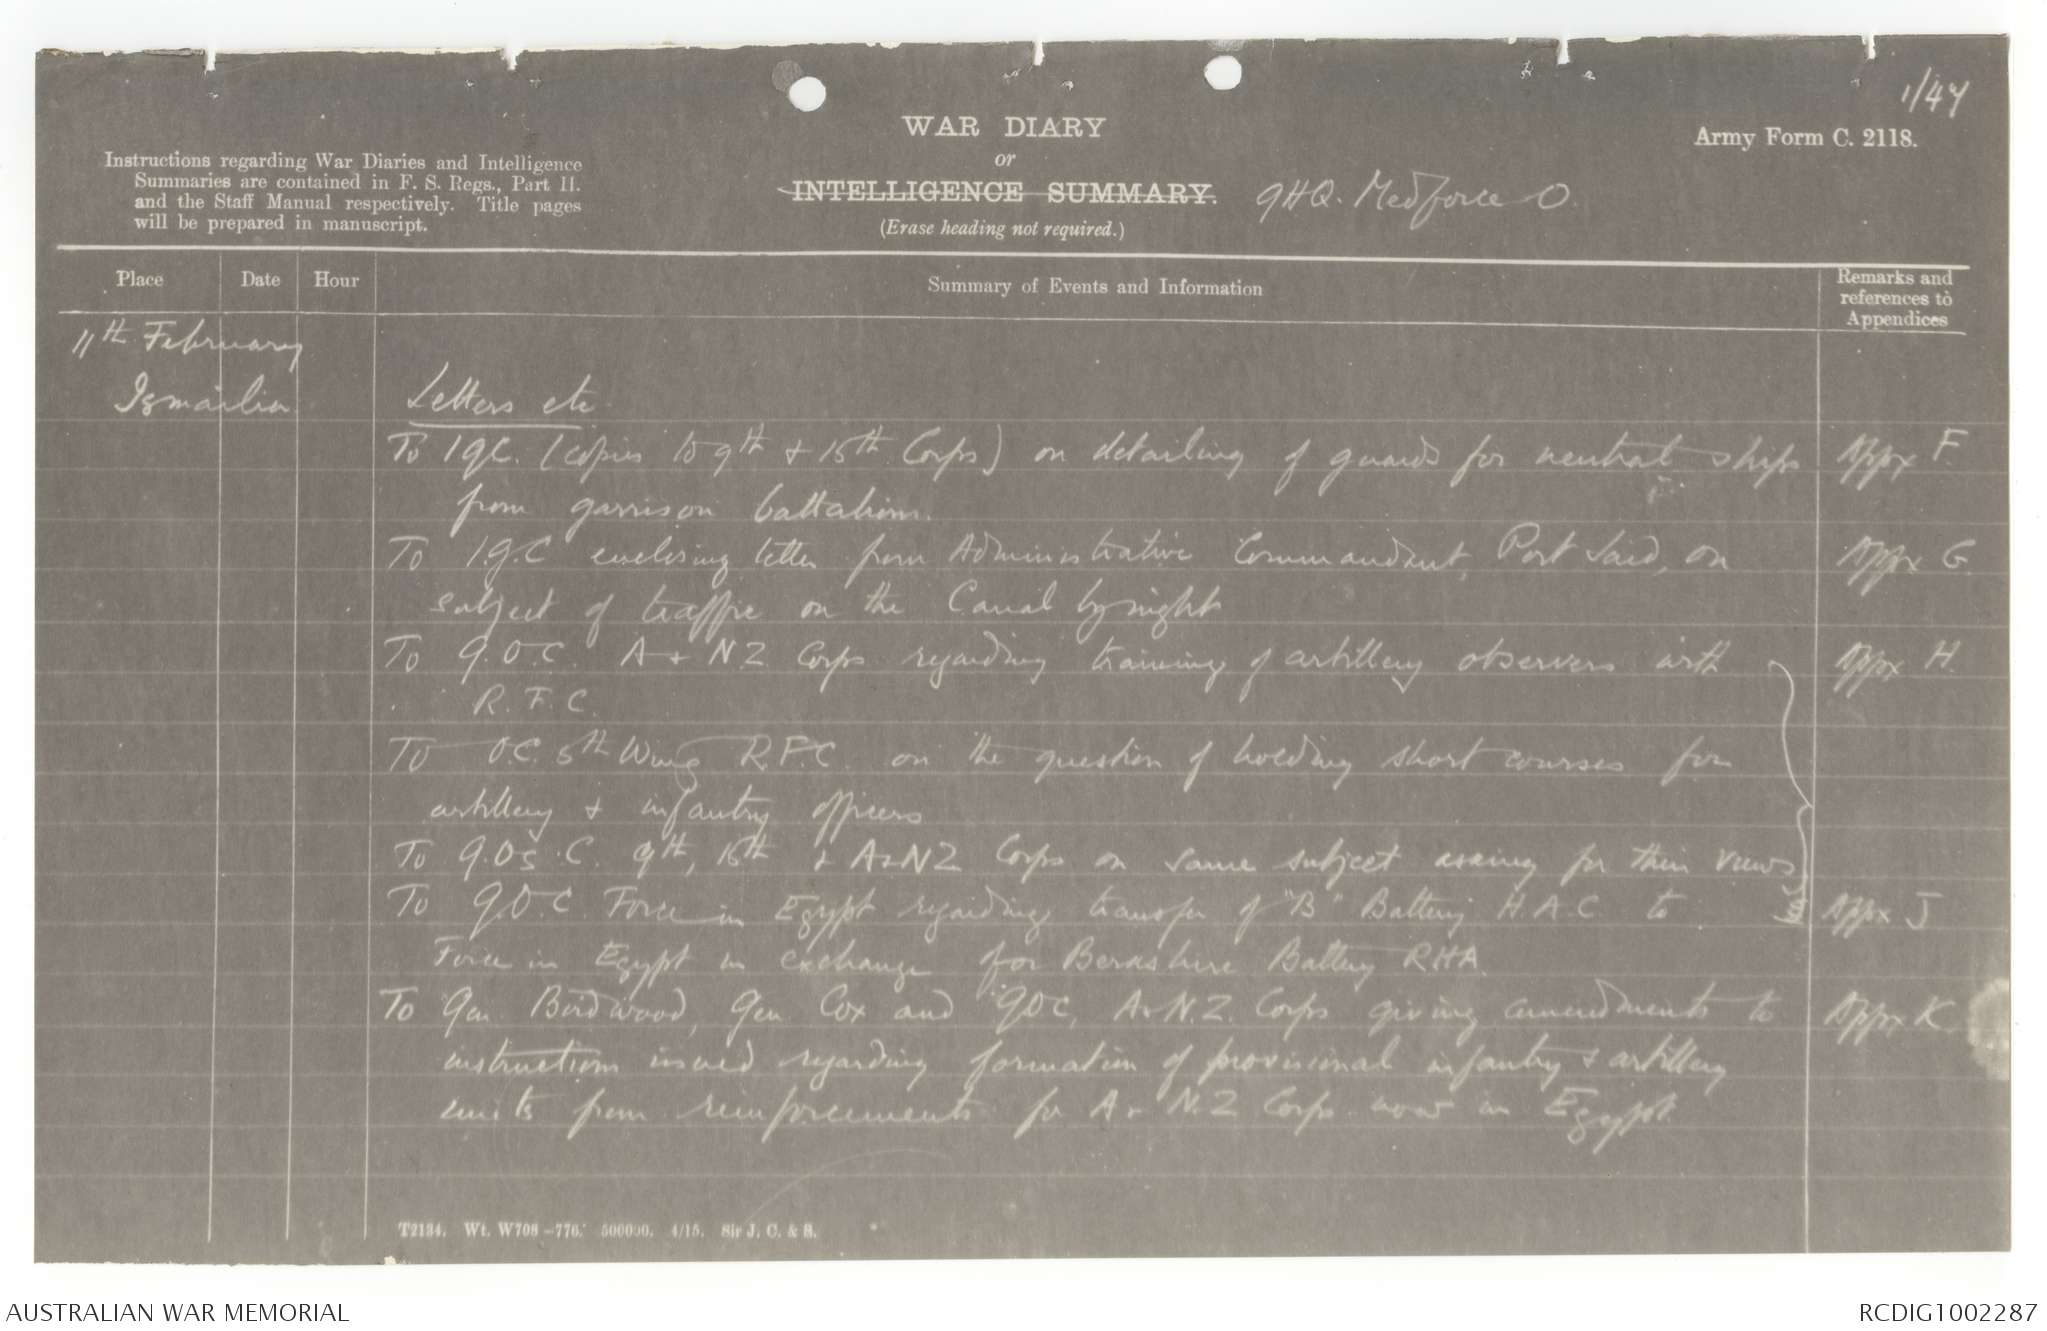 1/47
WAR DIARY
or
INTELLIGENCE SUMMARY.
(Erase heading not required.)
GHQ. Medforce O.
Army Form C. 2118.
Instructions regarding War Diaries and Intelligence
Summaries are contained in F. S. Regs., Part II.
and the Staff Manual respectively. Title pages
will be prepared in manuscript.
Place Date Hour Summary of Events and Information Remarks and
references to
Appendices
11th February
Ismailia Letters etc
To IGC. (copies to 9th & 15th Corps) on detailing of guards for neutral ships Appx F.
from garrison battalions.
To I.G.C enclosing letter from Administrative Commandant, Port Said, on Appx G.
subject of traffic on the Canal by night
To G.O.C. A & N.Z Corps regarding training of artillery observers with Appx H.
R.F.C.
To O.C. 5th Wing R.F.C. on the question of holding short courses for
artillery & infantry officers
To G.Os.C. 9th, 15th & A&NZ Corps on same subject asking for their views
To G.O.C. Force in Egypt regarding transfer of "B" Battery H.A.C. to Appx J
Force in Egypt in exchange for Berkshire Battery RHA.
To Gen. Birdwood, Gen Cox and GOC, A&N.Z. Corps giving amendments to Appx K
instructions issued regarding formation of provisional infantry & artillery
units from reinforcements for A & N.Z Corps now in Egypt.
T2134. Wt. W708-776. 500000. 4/15. Sir J. C. & S.
AUSTRALIAN WAR MEMORIAL
RCDIG1002287